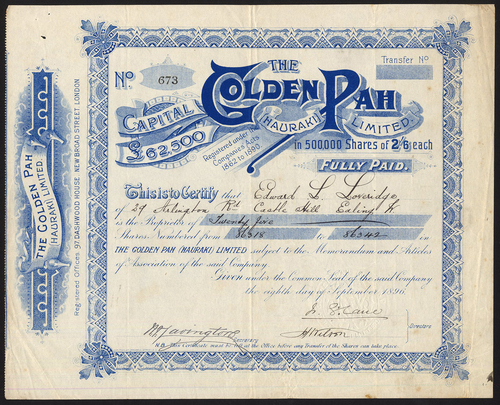 THE GOLDEN PAH (HAURAKI) LIMITED.
Registered Offices 97 GASHWOOD HOUSE NEW BROAD STREET LONDON
No. 673
Transfer No
THE
GOLDEN PAH
(HAURAKI) LIMITED.
CAPITAL
£62,500
Registered under
Companies Acts
1862 to 1893
in 500000 Shares of 2/6 each
FULLY PAID.
This is to Certify that Edward L. Loveridge
of 29 Arlington Rd Castle Hill Ealing W
is the Proprietor of Twenty five
Shares numbered from 86318 to 86342 in
THE GOLDEN PAH (HAURAKI) LIMITED subject to the Memorandum and Articles
of Association of the said Company
Given under the Common Seal of the said Company
the eighth day of September 1896.
Directors
Secretary
N.B. This Certificate must be left at the Office before any Transfer of the Shares can take place.